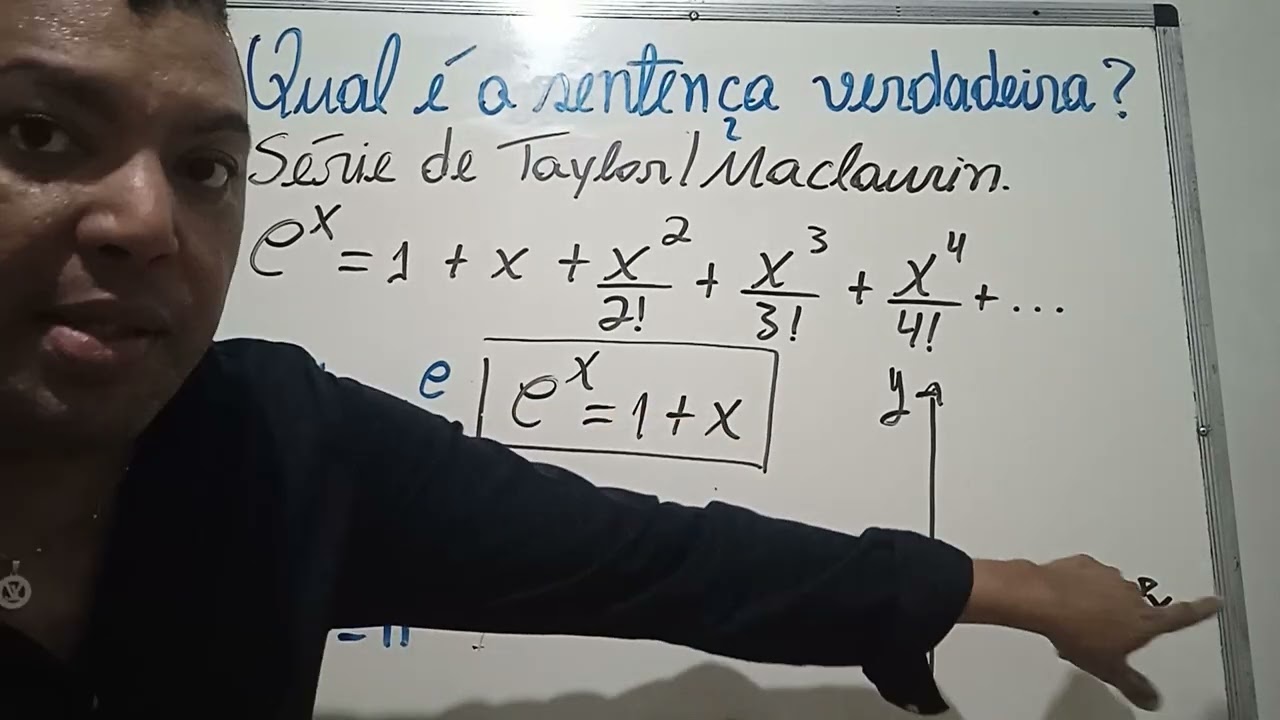 Qual é a sentença verdadeira?
Série de Taylor/Maclaurin.
e^x = 1 + x + x^2/2! + x^3/3! + x^4/4! + ...
e
e^x = 1 + x
y
x